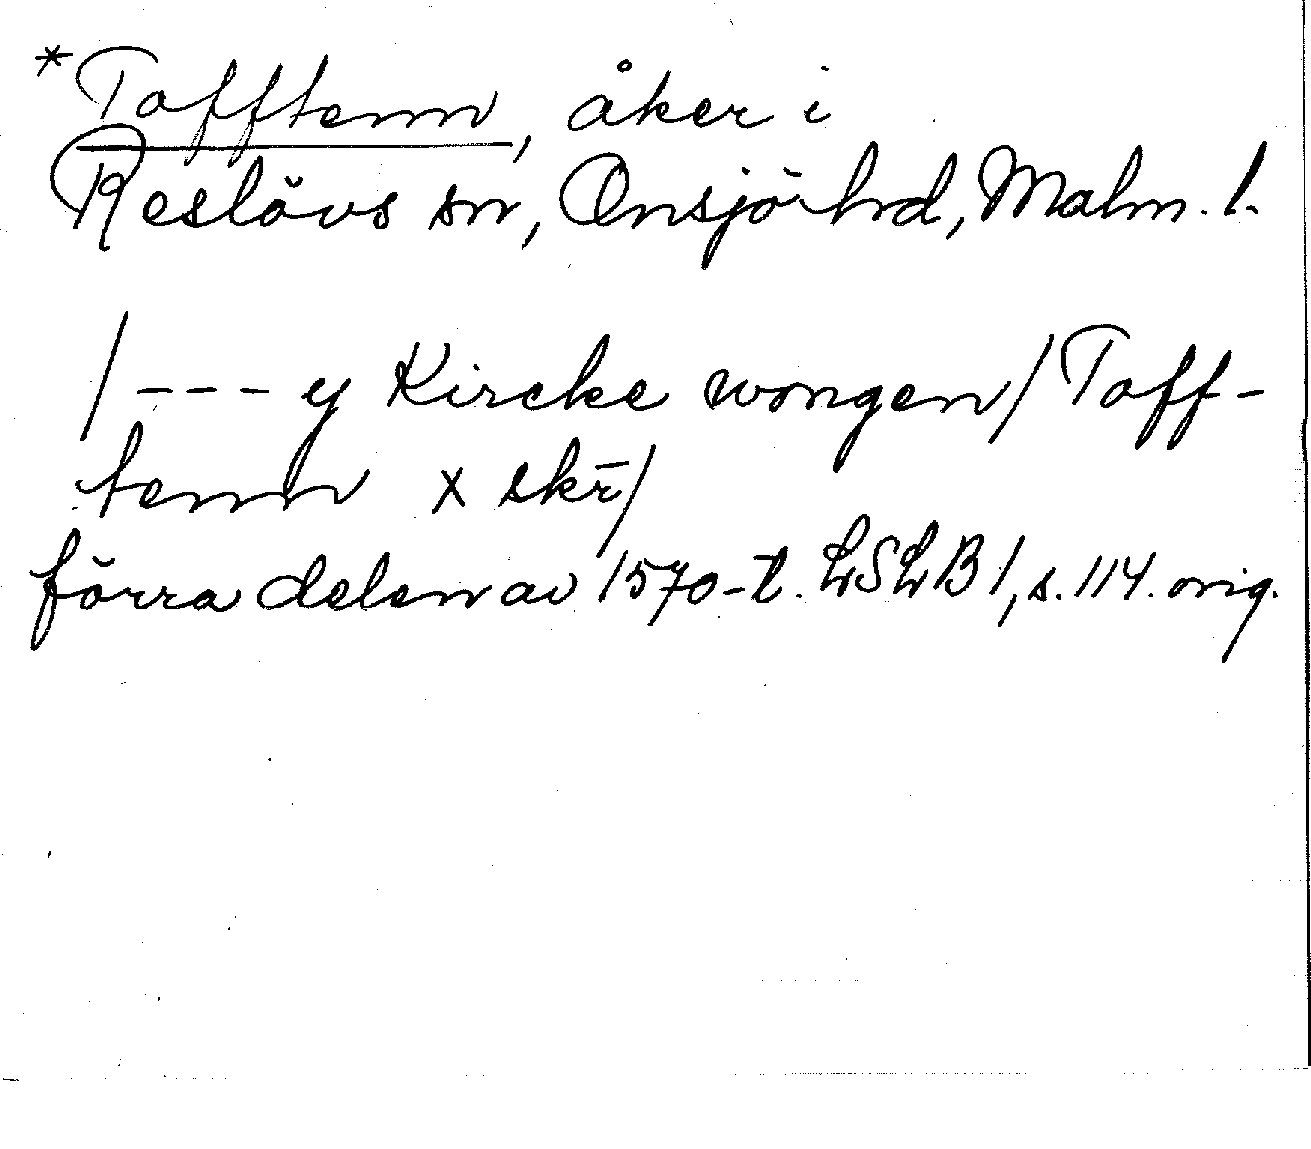 *Tofftenn, åker i
Reslövs sn, Onsjö hd, Malm. l.
/--- y Kircke wongen/ Toff-
tenn x skr̄/
förra delen av 1570-t. LSLB 1, s. 114. orig.